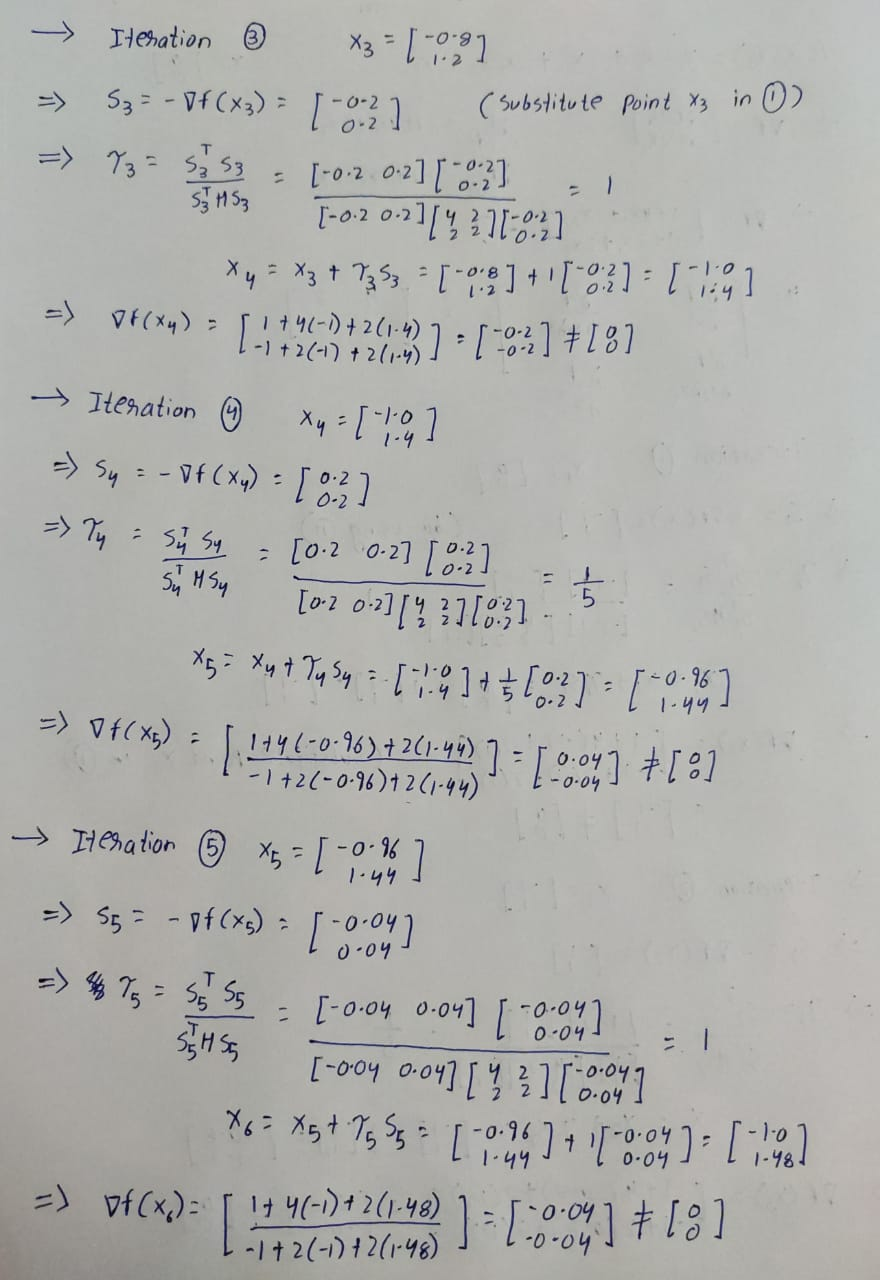 → Iteration ③ x₃ = [-0.8; 1.2]
⇒ S₃ = -∇f(x₃) = [-0.2; 0.2] (Substitute point x₃ in ①)
⇒ τ₃ = S₃ᵀ S₃ / S₃ᵀ H S₃ = [-0.2 0.2] [-0.2; 0.2] / [-0.2 0.2] [4 2; 2 2] [-0.2; 0.2] = 1
x₄ = x₃ + τ₃S₃ = [-0.8; 1.2] + 1 [-0.2; 0.2] = [-1.0; 1.4]
⇒ ∇f(x₄) = [1+4(-1)+2(1.4); -1+2(-1)+2(1.4)] = [-0.2; -0.2] ≠ [0; 0]
→ Iteration ④ x₄ = [-1.0; 1.4]
⇒ S₄ = -∇f(x₄) = [0.2; 0.2]
⇒ τ₄ = S₄ᵀ S₄ / S₄ᵀ H S₄ = [0.2 0.2] [0.2; 0.2] / [0.2 0.2] [4 2; 2 2] [0.2; 0.2] = 1/5
x₅ = x₄ + τ₄S₄ = [-1.0; 1.4] + 1/5 [0.2; 0.2] = [-0.96; 1.44]
⇒ ∇f(x₅) = [1+4(-0.96)+2(1.44); -1+2(-0.96)+2(1.44)] = [0.04; -0.04] ≠ [0; 0]
→ Iteration ⑤ x₅ = [-0.96; 1.44]
⇒ S₅ = -∇f(x₅) = [-0.04; 0.04]
⇒ τ₅ = S₅ᵀ S₅ / S₅ᵀ H S₅ = [-0.04 0.04] [-0.04; 0.04] / [-0.04 0.04] [4 2; 2 2] [-0.04; 0.04] = 1
x₆ = x₅ + τ₅S₅ = [-0.96; 1.44] + 1 [-0.04; 0.04] = [-1.0; 1.48]
⇒ ∇f(x₆) = [1+4(-1)+2(1.48); -1+2(-1)+2(1.48)] = [-0.04; -0.04] ≠ [0; 0]